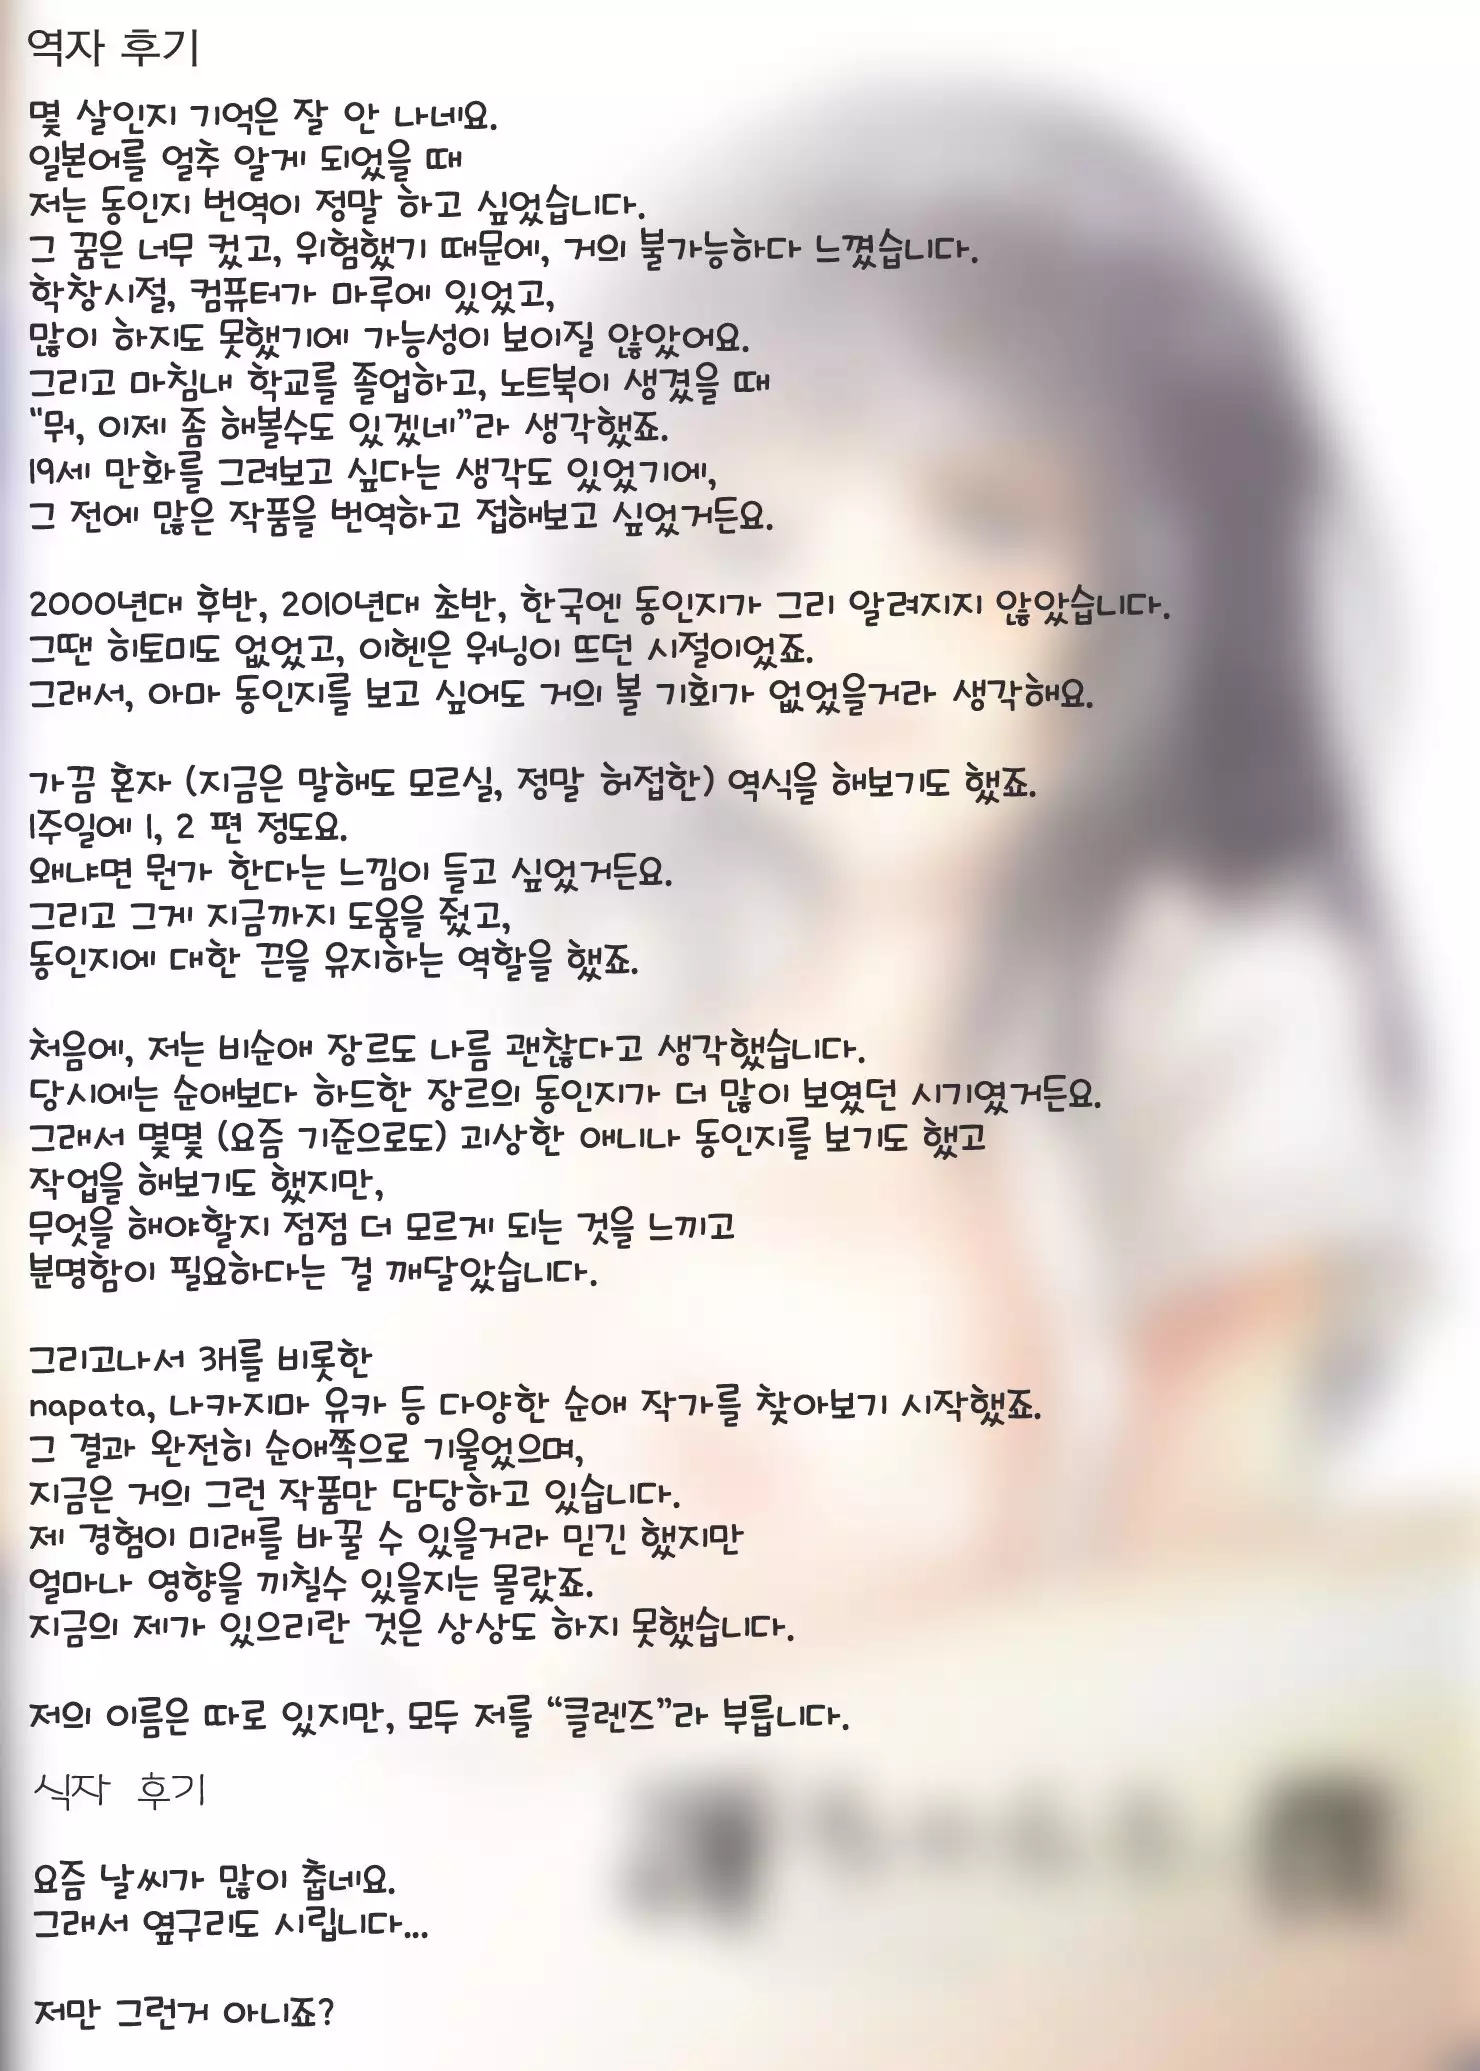 역자 후기
몇 살인지 기억은 잘 안 나네요.
일본어를 얼추 알게 되었을 때
저는 동인지 번역이 정말 하고 싶었습니다.
그 꿈은 너무 컸고, 위험했기 때문에, 거의 불가능하다 느꼈습니다.
학창시절, 컴퓨터가 마루에 있었고,
많이 하지도 못했기에 가능성이 보이질 않았어요.
그리고 마침내 학교를 졸업하고, 노트북이 생겼을 때
“뭐, 이제 좀 해볼수도 있겠네”라 생각했죠.
19세 만화를 그려보고 싶다는 생각도 있었기에,
그 전에 많은 작품을 번역하고 접해보고 싶었거든요.
2000년대 후반, 2010년대 초반, 한국엔 동인지가 그리 알려지지 않았습니다.
그땐 히토미도 없었고, 이헨은 워닝이 뜨던 시절이었죠.
그래서, 아마 동인지를 보고 싶어도 거의 볼 기회가 없었을거라 생각해요.
가끔 혼자 (지금은 말해도 모르실, 정말 허접한) 역식을 해보기도 했죠.
1주일에 1, 2 편 정도요.
왜냐면 뭔가 한다는 느낌이 들고 싶었거든요.
그리고 그게 지금까지 도움을 줬고,
동인지에 대한 끈을 유지하는 역할을 했죠.
처음에, 저는 비순애 장르도 나름 괜찮다고 생각했습니다.
당시에는 순애보다 하드한 장르의 동인지가 더 많이 보였던 시기였거든요.
그래서 몇몇 (요즘 기준으로도) 괴상한 애니나 동인지를 보기도 했고
작업을 해보기도 했지만,
무엇을 해야할지 점점 더 모르게 되는 것을 느끼고
분명함이 필요하다는 걸 깨달았습니다.
그리고나서 3개를 비롯한
napata, 나카지마 유카 등 다양한 순애 작가를 찾아보기 시작했죠.
그 결과 완전히 순애쪽으로 기울었으며,
지금은 거의 그런 작품만 담당하고 있습니다.
제 경험이 미래를 바꿀 수 있을거라 믿긴 했지만
얼마나 영향을 끼칠수 있을지는 몰랐죠.
지금의 제가 있으리란 것은 상상도 하지 못했습니다.
저의 이름은 따로 있지만, 모두 저를 “클렌즈”라 부릅니다.
식자 후기
요즘 날씨가 많이 춥네요.
그래서 옆구리도 시립니다...
저만 그런거 아니죠?